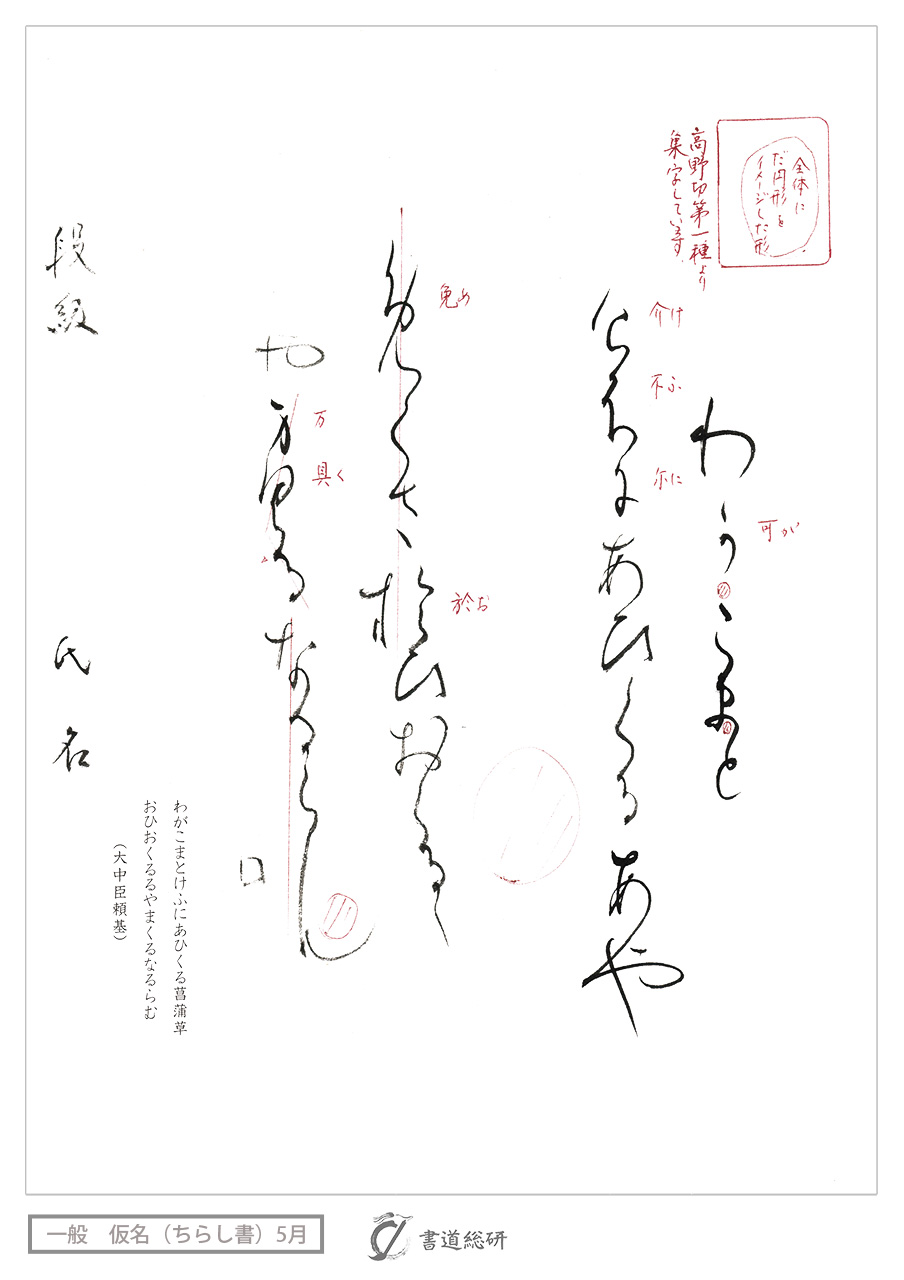 全体に
だ円形を
イメージした形
高野切第一種より
集字しています
わかこまと
可が
けふにあひくるあや
介け
不ふ
尓に
めくさおひおくるゝ
免め
於お
やまくるなるらし
万
具く
段級
氏名
わがこまとけふにあひくる菖蒲草
おひおくるるやまくるなるらむ
（大中臣頼基）
一般　仮名（ちらし書）5月
書道総研